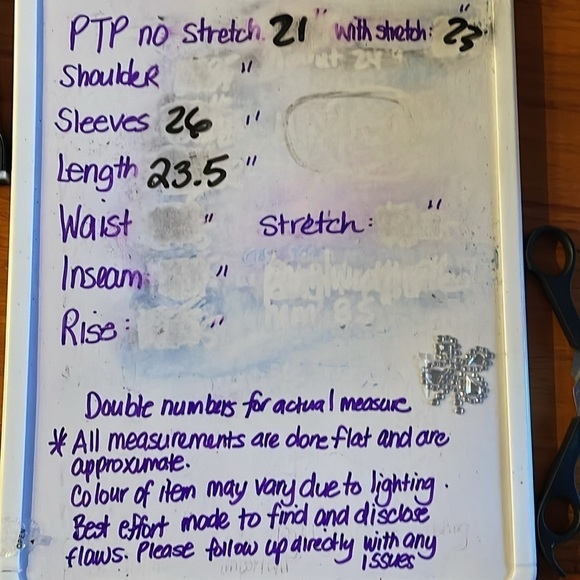 PTP no stretch. 21" with stretch: 23"
Shoulder "
Sleeves 26 "
Length 23.5 "
Waist " Stretch: "
Inseam: "
Rise: "
Double numbers for actual measure
* All measurements are done flat and are
approximate.
Colour of item may vary due to lighting.
Best effort made to find and disclose
flaws. Please follow up directly with any
issues